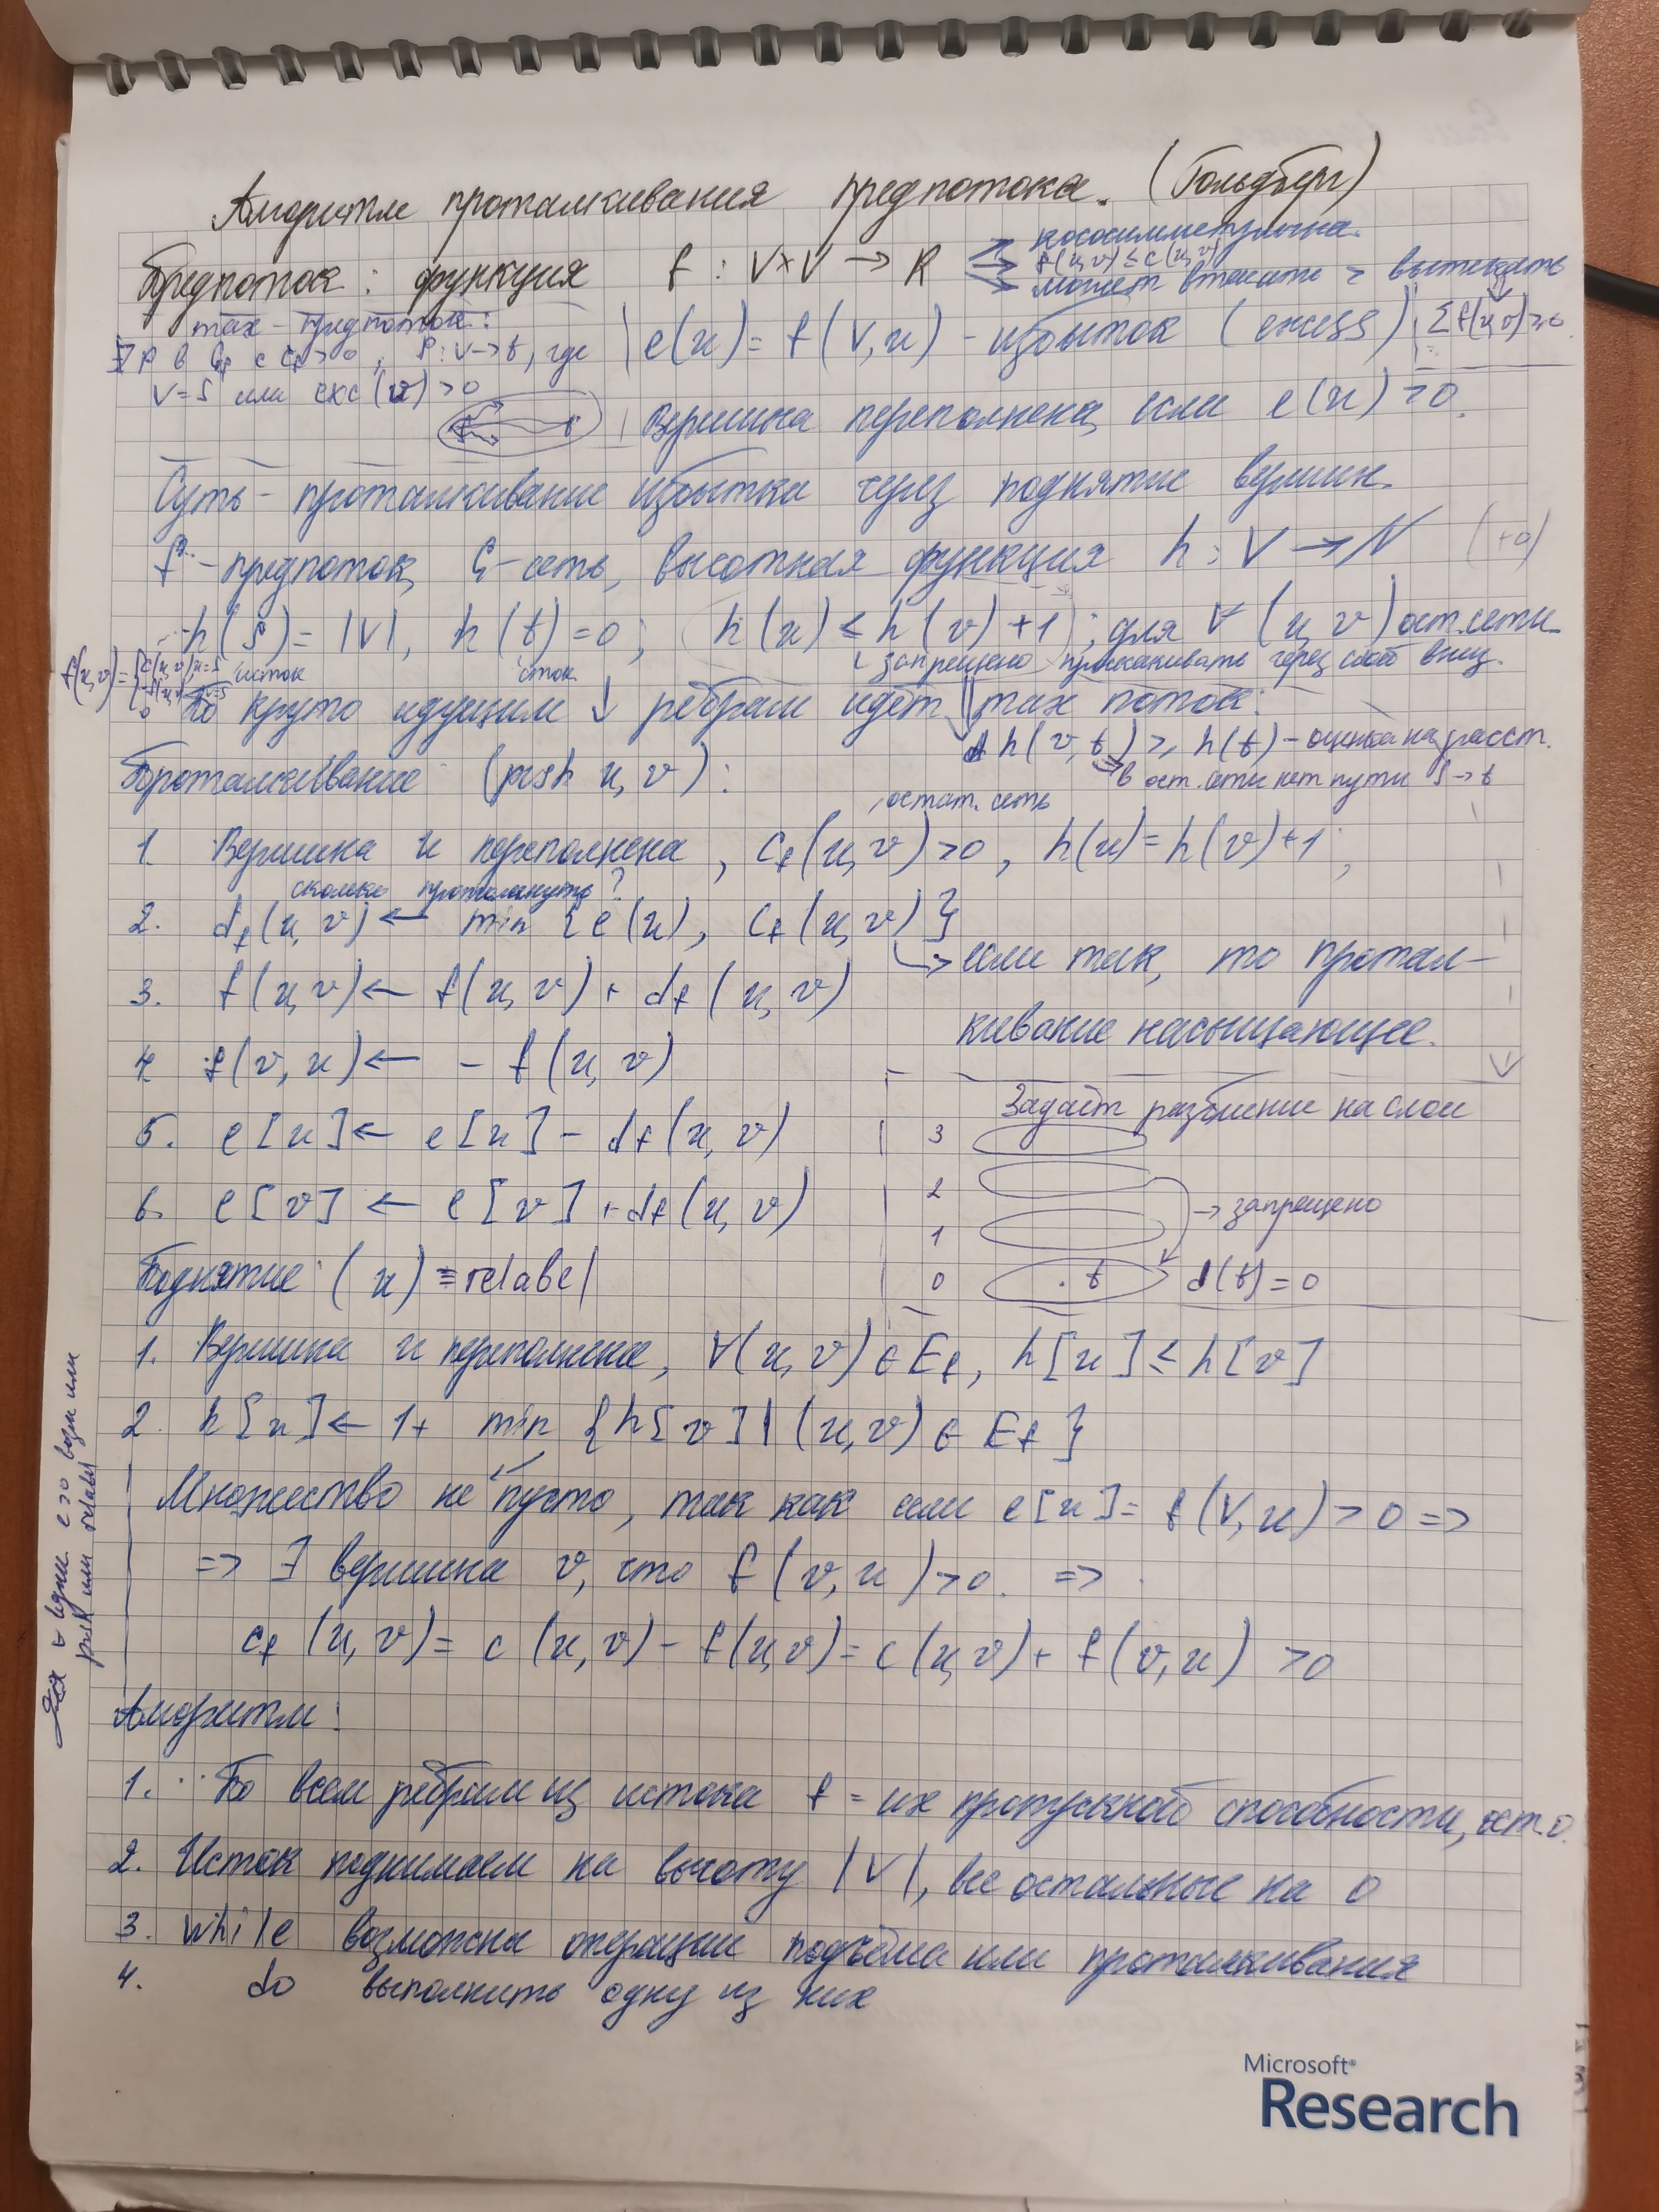 Алгоритм проталкивания предпотока. (Гольдберг)
Предпоток: функция f : V×V → R
кососимметрична.
f(u,v) ≤ c(u,v)
может втекать > вытекать
max-предпоток:
∄ p в Gf с cf > 0, p: v→t, где
v=s или exc(v) > 0
e(u) = f(V,u) - избыток (excess)
Σf(u,v) ≥ 0
Вершина переполнена, если e(u) > 0.
Суть - проталкивание избытка через поднятие вершин.
f - предпоток, G - сеть, высотная функция h : V → N (+0)
h(s) = |V|, h(t) = 0; h(u) ≤ h(v)+1; для ∀ (u,v) ост. сети
исток
сток
запрещено проскакивать через слой вниз.
f(u,v) = { c(u,v), u=s
-f(v,u), v=s
0
По круто идущим ↓ рёбрам идёт max поток:
h(v,t) ≥ h(t) - оценка на расст.
в ост. сети нет пути s→t
Проталкивание (push u,v):
остат. сеть
1. Вершина u переполнена, cf(u,v) > 0, h(u) = h(v)+1;
сколько протолкнуть?
2. df(u,v) ← min {e(u), cf(u,v)}
→ если так, то протал-
кивание насыщающее.
3. f(u,v) ← f(u,v) + df(u,v)
4. f(v,u) ← - f(u,v)
5. e[u] ← e[u] - df(u,v)
6. e[v] ← e[v] + df(u,v)
Задаёт разбиение на слои
3
2
→ запрещено
1
0 . t d(t) = 0
Поднятие (u) ≡ relabel
1. Вершина u переполнена, ∀(u,v) ∈ Ef, h[u] ≤ h[v]
2. h[u] ← 1+ min {h[v] | (u,v) ∈ Ef}
Множество не пусто, так как если e[u] = f(V,u) > 0 =>
=> ∃ вершина v, что f(v,u) > 0. =>
cf(u,v) = c(u,v) - f(u,v) = c(u,v) + f(v,u) > 0
Для ∀ верш. e>0 возм или
push или relabel
Алгоритм:
1. По всем рёбрам из истока f = их пропускной способности, ост. 0.
2. Исток поднимаем на высоту |V|, все остальные на 0
3. while возможны операции подъёма или проталкивания
4. do выполнить одну из них
Microsoft®
Research